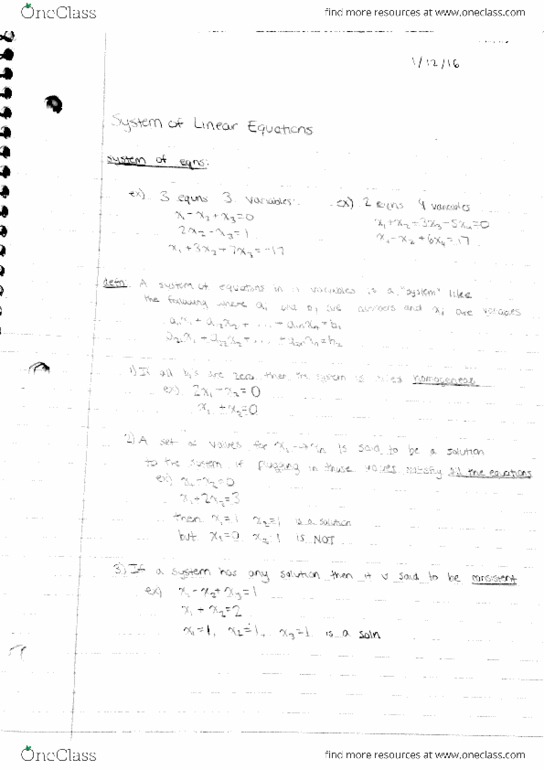 OneClass find more resources at www.oneclass.com
1/12/16
System of Linear Equations
system of eqns:
ex) 3 eqns 3 variables ex) 2 eqns 4 variables
x-x₂+x₃=0 x₁+x₂-3x₃-5x₄=0
2x₂-x₃=1 x₁-x₂+6x₄=17
x₁+3x₂+7x₃=-17
defn A system of equations in n variables is a "system" like
the following where aᵢ and bᵢ are numbers and xᵢ are variables
a₁₁x₁+a₁₂x₂+...+a₁ₙxₙ=b₁
a₂₁x₁+a₂₂x₂+...+a₂ₙxₙ=b₂
1) If all bᵢs are zero then the system is called
ex) 2x₁-x₂=0
x₁+x₂=0
2) A set of values for x₁→xₙ is said to be a solution
to the system if plugging in those values satisfy all the equations
ex) x₁-x₂=0
x₁+2x₂=3
then x₁=1 x₂=1 is a solution
but x₁=0 x₂=1 is NOT
3) If a system has any solution then it is said to be consistent
ex) x₁-x₂+x₃=1
x₁+x₂=2
x₁=1, x₂=1, x₃=1 is a soln
OneClass find more resources at www.oneclass.com